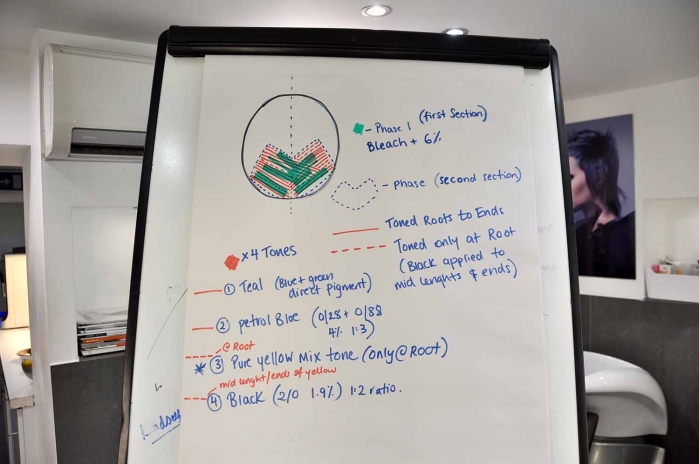 - Phase 1 (first Section)
Bleach + 6%
- Phase (second section)
Toned Roots to Ends
Toned only at Root
(Black applied to
mid lenghts & ends)
x4 Tones
① Teal (Blue + green
direct pigment)
② petrol Bloe (0/28 + 0/88
4% 1:3)
@ Root
* ③ Pure yellow mix tone (only @ Root)
mid lenght/ends of yellow
④ Black (2/0 1.9%) 1:2 ratio.